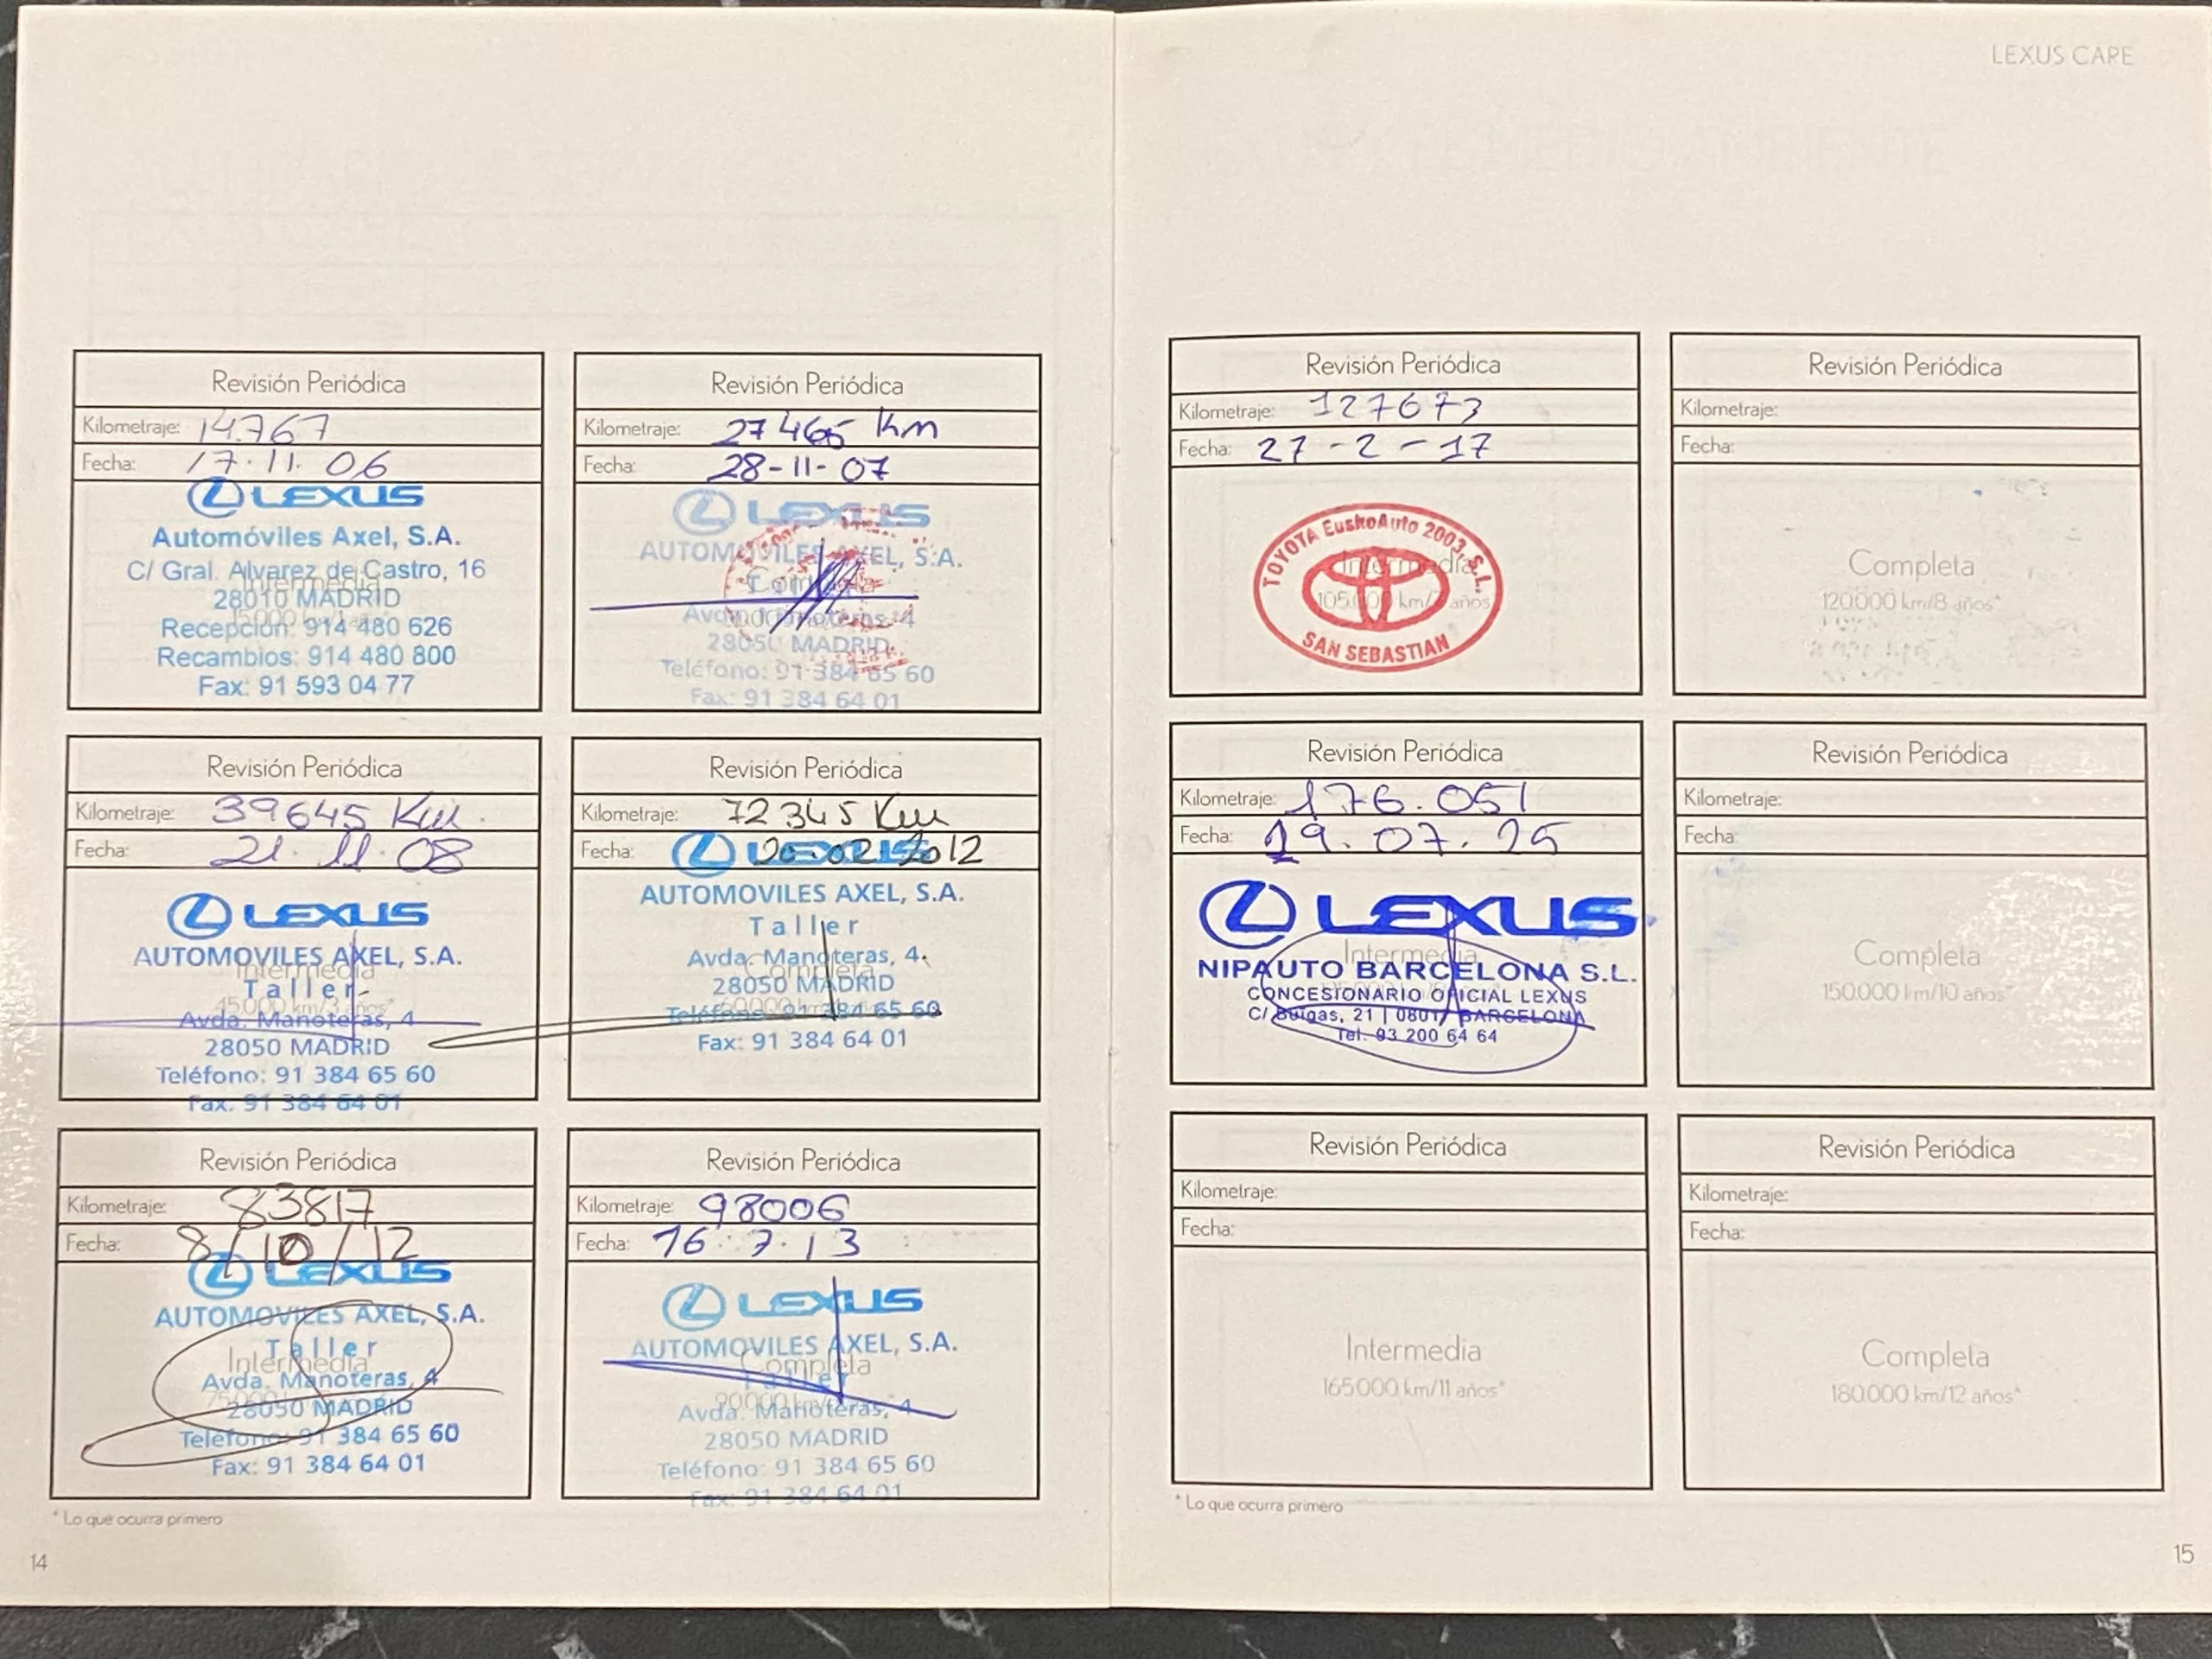 LEXUS CARE
Revisión Periódica
Kilometraje: 14.767
Fecha: 17.11.06
LEXUS
Automóviles Axel, S.A.
C/ Gral. Alvarez de Castro, 16
Intermedia
28010 MADRID
Recepción: 914 480 626
Recambios: 914 480 800
Fax: 91 593 04 77
Revisión Periódica
Kilometraje: 27465 Km
Fecha: 28-11-07
LEXUS
AUTOMOVILES AXEL, S.A.
Avda. Manoteras, 4
28050 MADRID
Teléfono: 91 384 65 60
Fax: 91 384 64 01
Revisión Periódica
Kilometraje: 39645 Km.
Fecha: 21.11.08
LEXUS
AUTOMOVILES AXEL, S.A.
Intermedia
Taller
45.000 km/3 años*
Avda. Manoteras, 4
28050 MADRID
Teléfono: 91 384 65 60
Fax: 91 384 64 01
Revisión Periódica
Kilometraje: 72345 Km
Fecha: 20.02.2012
LEXUS
AUTOMOVILES AXEL, S.A.
Taller
Avda. Manoteras, 4.
Completa
28050 MADRID
Teléfono: 91 384 65 60
Fax: 91 384 64 01
Revisión Periódica
Kilometraje: 83817
Fecha: 8/10/12
LEXUS
AUTOMOVILES AXEL, S.A.
Taller
Intermedia
Avda. Manoteras, 4
28050 MADRID
Teléfono: 91 384 65 60
Fax: 91 384 64 01
Revisión Periódica
Kilometraje: 98006
Fecha: 16.7.13
LEXUS
AUTOMOVILES AXEL, S.A.
Completa
Taller
Avda. Manoteras, 4
28050 MADRID
Teléfono: 91 384 65 60
Fax: 91 384 64 01
* Lo que ocurra primero
14
Revisión Periódica
Kilometraje: 127673
Fecha: 27-2-17
TOYOTA EuskoAuto 2003, S.L.
Intermedia
105.000 km/7 años
SAN SEBASTIAN
Revisión Periódica
Kilometraje:
Fecha:
Completa
120.000 km/8 años*
Revisión Periódica
Kilometraje: 176.051
Fecha: 19.07.25
LEXUS
Intermedia
NIPAUTO BARCELONA S.L.
CONCESIONARIO OFICIAL LEXUS
C/ Buigas, 21 | 08017 BARCELONA
Tel. 93 200 64 64
Revisión Periódica
Kilometraje:
Fecha:
Completa
150.000 km/10 años*
Revisión Periódica
Kilometraje:
Fecha:
Intermedia
165.000 km/11 años*
Revisión Periódica
Kilometraje:
Fecha:
Completa
180.000 km/12 años*
* Lo que ocurra primero
15